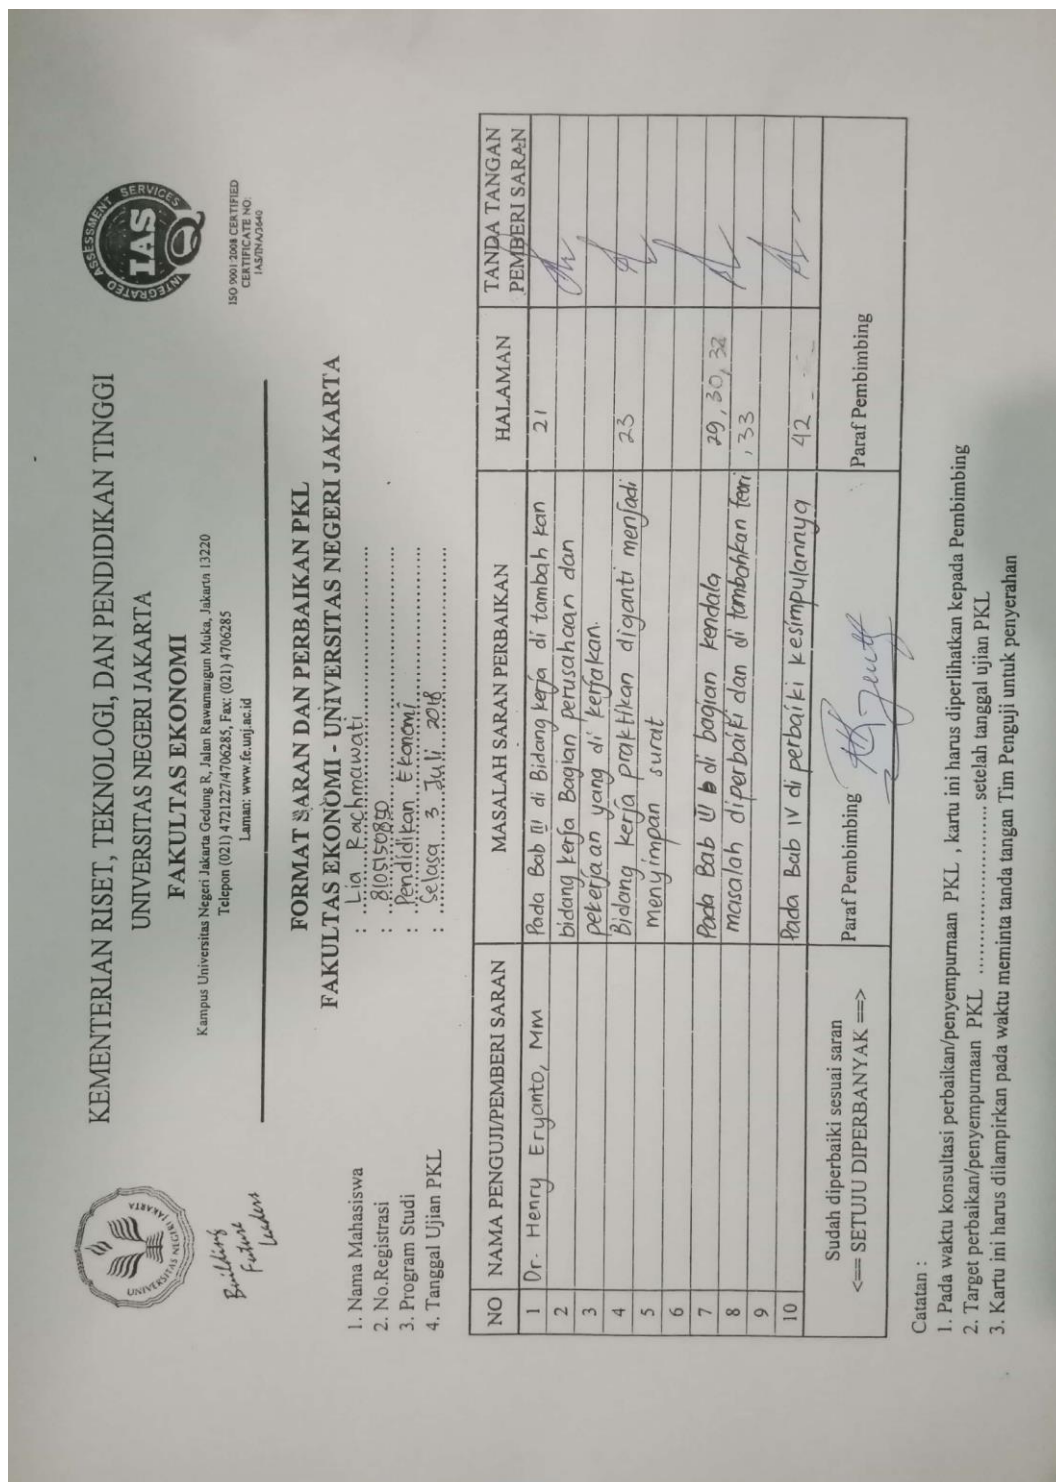 KEMENTERIAN RISET, TEKNOLOGI, DAN PENDIDIKAN TINGGI
UNIVERSITAS NEGERI JAKARTA
FAKULTAS EKONOMI
Kampus Universitas Negeri Jakarta Gedung R, Jalan Rawamangun Muka, Jakarta 13220
Telepon (021) 4721227/4706285, Fax: (021) 4706285
Laman: www.fe.unj.ac.id
UNIVERSITAS NEGERI JAKARTA
Building
Future
Leaders
INTEGRATED ASSESSMENT SERVICES
IAS
ISO 9001:2008 CERTIFIED
CERTIFICATE NO:
IAS/INA/3640
FORMAT SARAN DAN PERBAIKAN PKL
FAKULTAS EKONOMI - UNIVERSITAS NEGERI JAKARTA
1. Nama Mahasiswa : Lia Rachmawati
2. No.Registrasi : 8105150850
3. Program Studi : Pendidikan Ekonomi
4. Tanggal Ujian PKL : Selasa 3 Juli 2018
NO NAMA PENGUJI/PEMBERI SARAN MASALAH SARAN PERBAIKAN HALAMAN TANDA TANGAN PEMBERI SARAN
1 Dr. Henry Eryanto, MM Pada Bab III di Bidang kerja di tambah kan 21
2 bidang kerja Bagian perusahaan dan
3 pekerjaan yang di kerjakan.
4 Bidang kerja praktikan diganti menjadi 23
5 menyimpan surat
6
7 Pada Bab III di bagian kendala 29, 30, 32
8 masalah diperbaiki dan di tambahkan teori , 33
9
10 Pada Bab IV di perbaiki kesimpulannya 42
Sudah diperbaiki sesuai saran
<== SETUJU DIPERBANYAK ==>
Paraf Pembimbing
Paraf Pembimbing
Catatan :
1. Pada waktu konsultasi perbaikan/penyempurnaan PKL , kartu ini harus diperlihatkan kepada Pembimbing
2. Target perbaikan/penyempurnaan PKL ........................ setelah tanggal ujian PKL
3. Kartu ini harus dilampirkan pada waktu meminta tanda tangan Tim Penguji untuk penyerahan